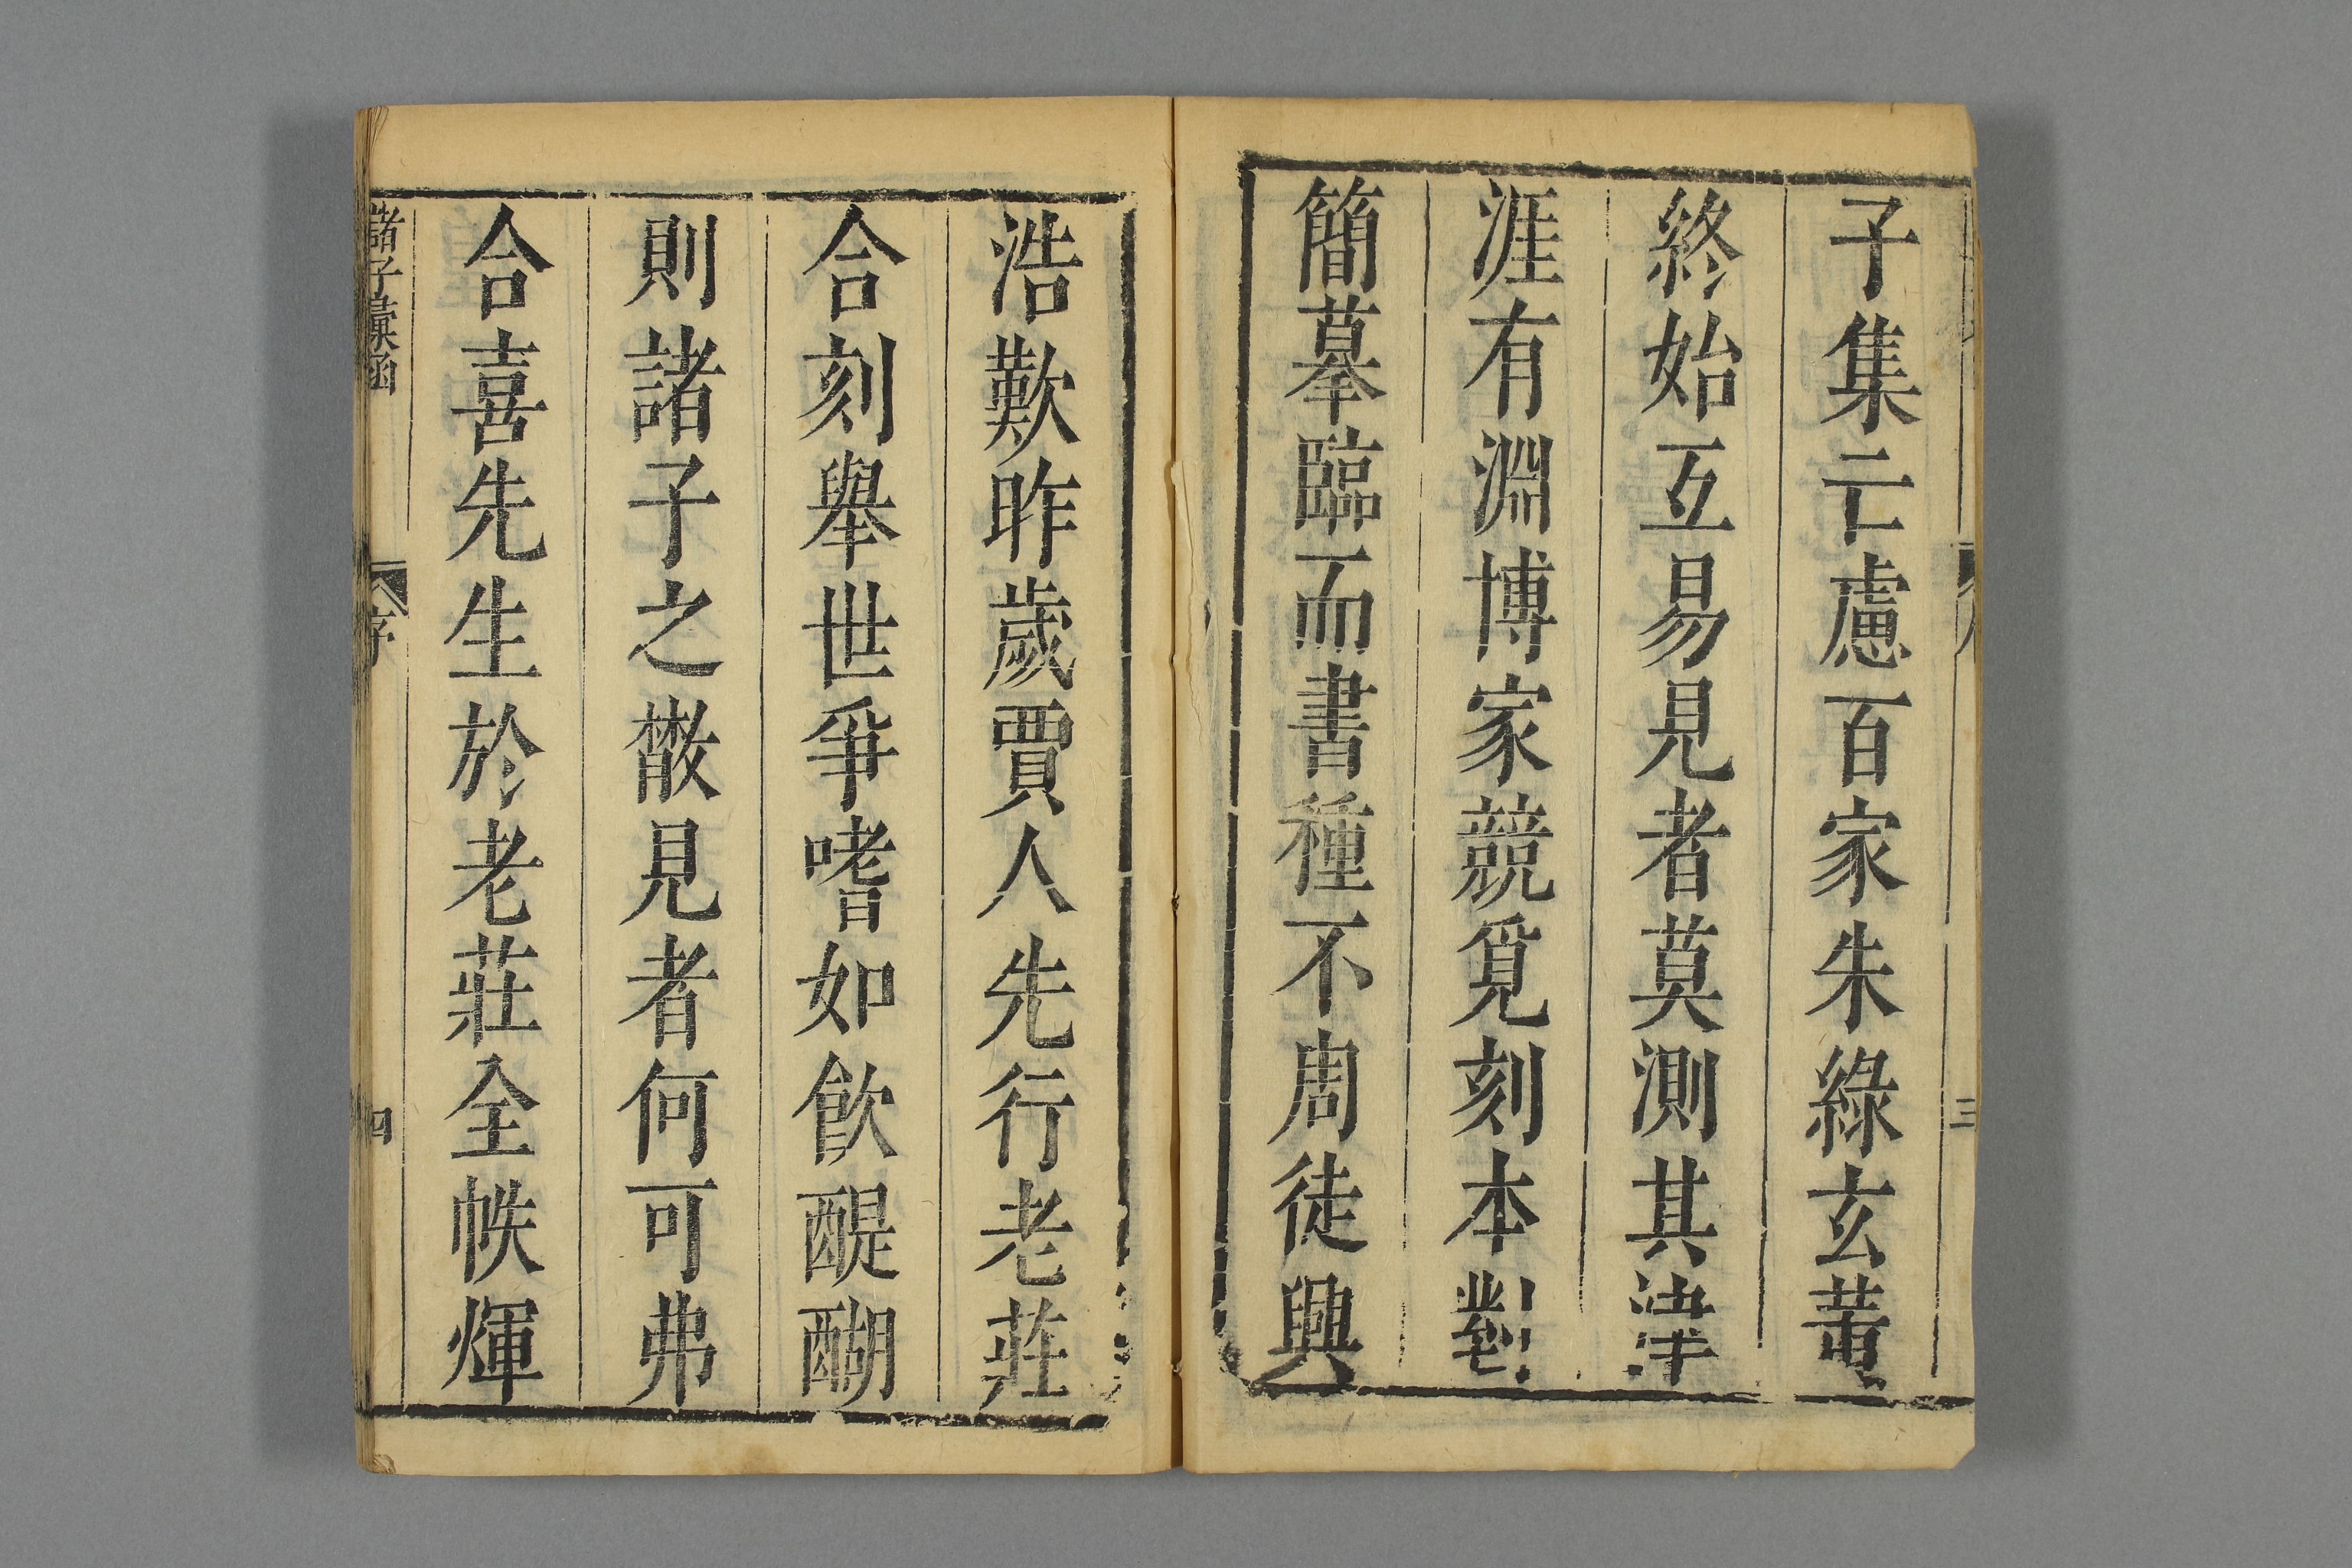 子集亡慮百家朱綠玄黃
終始互易見者莫測其津
涯有淵博家競覓刻本對
簡摹臨而書種不周徒興
三
浩歎昨歲賈人先行老莊
合刻舉世爭嗜如飲醍醐
則諸子之散見者何可弗
合喜先生於老莊全帙煇
諸子彙函
序
四